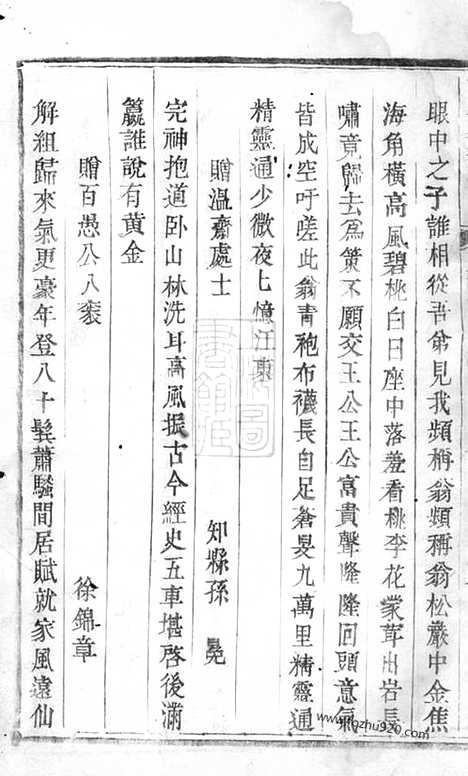 眼中之子誰相從吾弟見我頻稱翁頻稱翁松巖中金焦
海角橫高風碧桃白日座中落羞看桃李花蒙茸出岩長
嘯竟歸去為策不願交王公王公富貴聲隆隆回頭意氣
皆成空吁嗟此翁青袍布襪長自足蒼旻九萬里精靈通
精靈通少微夜上憶江東
贈溫齋處士 知縣孫 晃
完神抱道卧山林洗耳高風振古今經史五車堪啓後滿
籯誰說有黄金
贈百愚公八袠 徐錦章
解組歸來氣更豪年登八十鬓蕭騷間居賦就家風遠仙